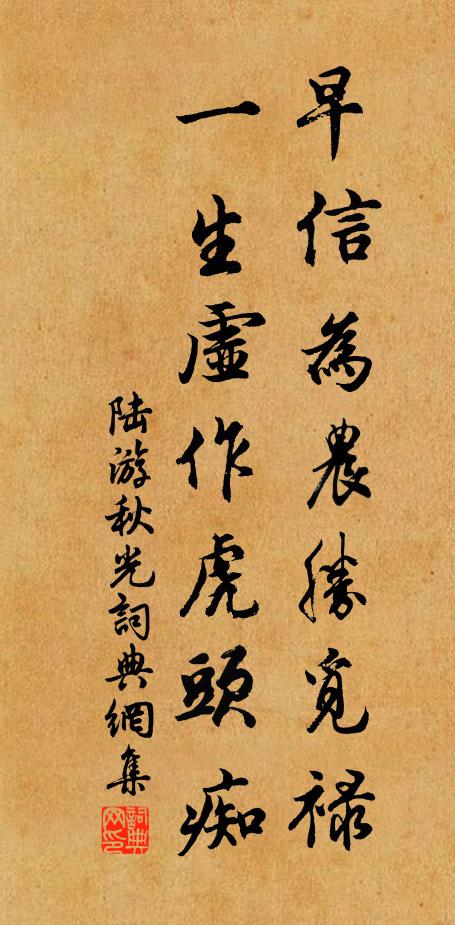 早信為農勝覓禄
一生虛作虎頭痴
陆游秋光詞典網集
詞典網印